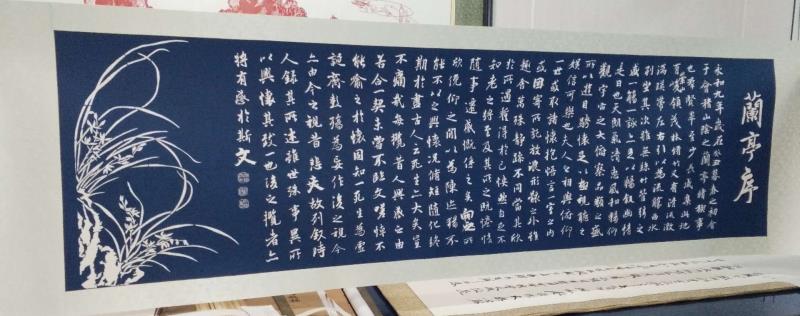 蘭亭序
永和九年歲在癸丑暮春之初會
于會稽山陰之蘭亭脩禊事
也群賢畢至少長咸集此地
有崇山峻領茂林脩竹又有清流激
湍暎帶左右引以為流觴曲水
列坐其次雖無絲竹管弦之
盛一觴一詠亦足以暢叙幽情
是日也天朗氣清惠風和暢仰
觀宇宙之大俯察品類之盛
所以遊目騁懷足以極視聽之
娛信可樂也夫人之相與俯仰
一世或取諸懷抱悟言一室之內
或因寄所託放浪形骸之外雖
趣舍萬殊靜躁不同當其欣
於所遇暫得於己怏然自足不
知老之將至及其所之既惓情
隨事遷感慨係之矣向之所
欣俛仰之間以為陳迹猶不
能不以之興懷況脩短隨化終
期於盡古人云死生亦大矣豈
不痛哉每攬昔人興感之由
若合一契未嘗不臨文嗟悼不
能喻之於懷固知一死生為虛
誕齊彭殤為妄作後之視今
亦由今之視昔悲夫故列叙時
人錄其所述雖世殊事異所
以興懷其致一也後之攬者亦
將有感於斯文